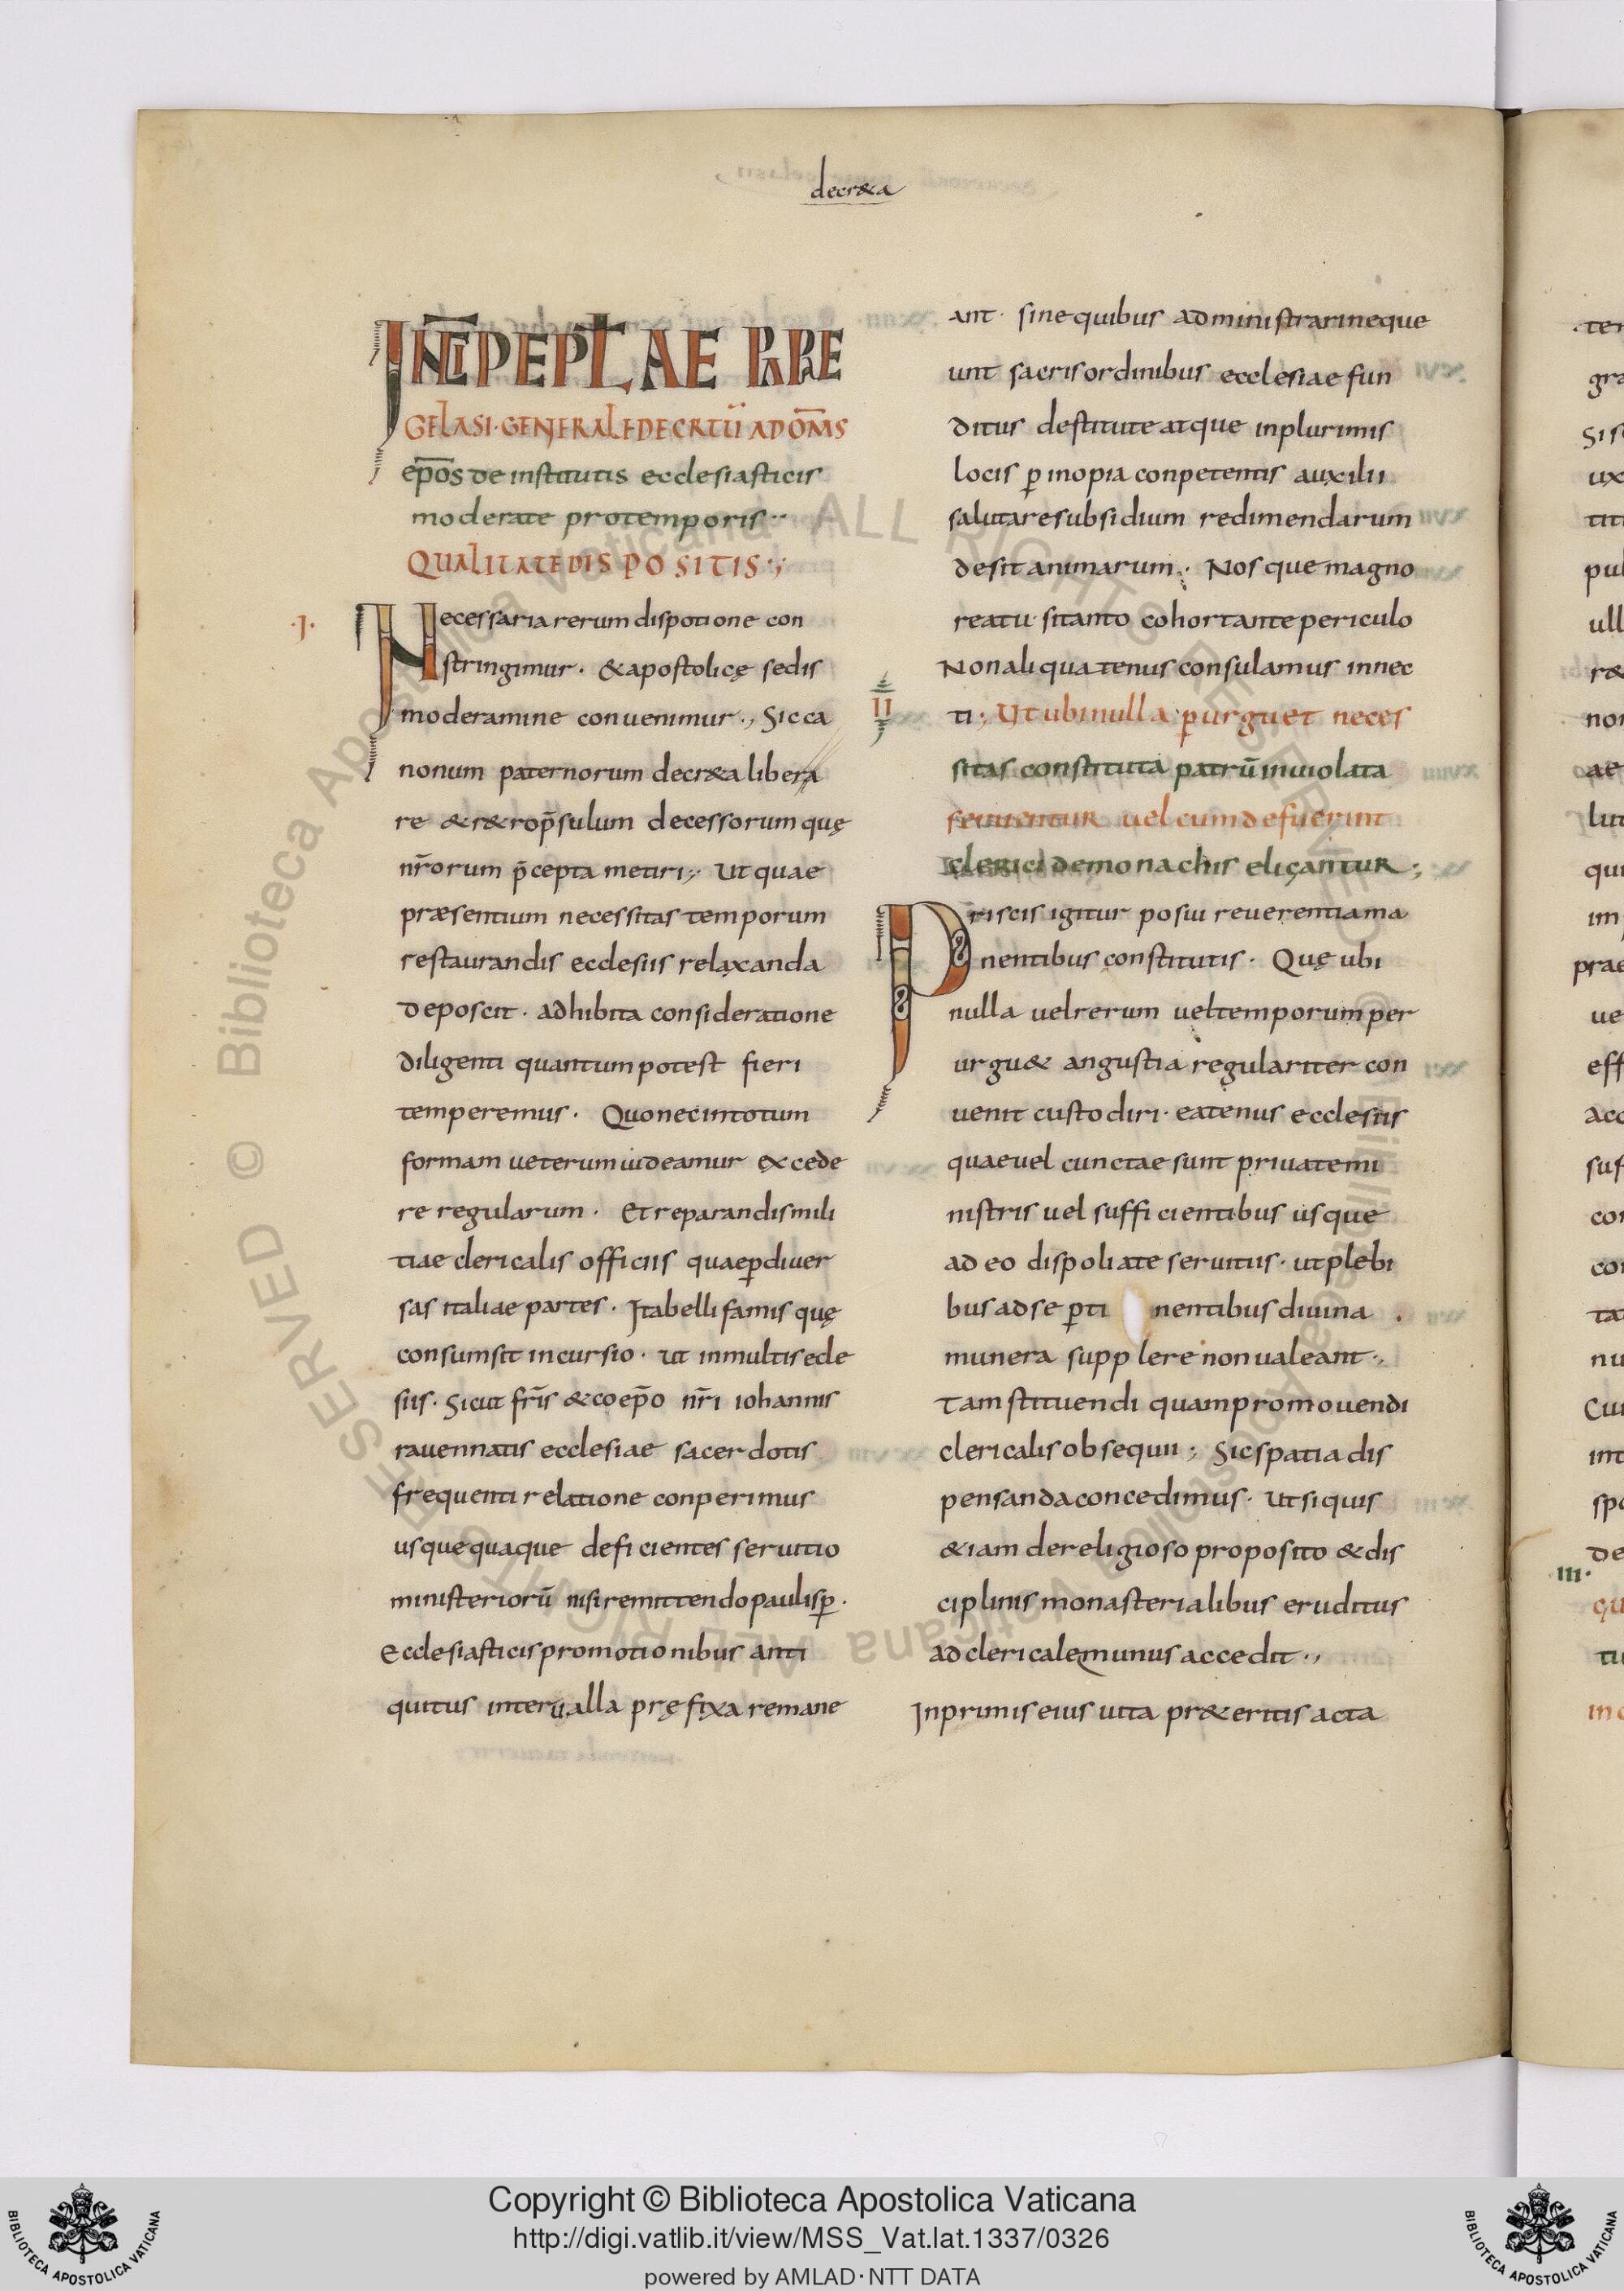 decr&a
INCI̅PEPTLAE PAPRE
GELASI·GENERALEDECRTU̅ ADOM̅S
ep̅os de institutis ecclesiasticis
moderate protemporis··
QUALITATEDISPOSITIS·;
·I·
Necessaria rerum dispotione con
stringimur· &apostolicę sedis
moderamine conuenimur·, Sic ca
nonum paternorum decr&a libera
re &r&rop̅sulum decessorum quę
nr̅orum p̅cepta metiri·, Ut quae
præsentium necessitas temporum
restaurandis ecclesiis relaxanda
deposcit· adhibita consideratione
diligenti quantum potest fieri
temperemus· Quo nec intotum
formam ueterum uideamur excede
re regularum· Et reparandis mili
tiae clericalis officiis quaeꝑdiuer
sas italiae partes· Ita belli famis quę
consumsit incursio· ut inmultis ecle
siis· Sicut fr̅is &coep̅o nr̅i iohannis
rauennatis ecclesiae sacerdotis
frequenti relatione conperimus
usquequaque deficientes seruitio
ministerioru̅ nisi remittendo paulisꝑ·
Ecclesiasticis promotionibus anti
quitus interualla pręfixa remane
ant· sine quibus administrari neque
unt sacris ordinibus ecclesiae fun
ditus destitute atque inplurimis
locis ꝑ inopia conpetentis auxilii
salutare subsidium redimendarum
desit animarum·, Nosque magno
reatu· si tanto cohortante periculo
Non aliquatenus consulamus innec
II
ti·, Ut ubi nulla ꝑurguet neces
sitas constituta patru̅ inuiolata
seruentur uel cum defuerint
clerici de monachis eligantur;
Priscis igitur posui reuerentia ma
nentibus constitutis· Quę ubi
nulla uel rerum uel temporum per
urgu& angustia regulariter con
uenit custodiri· eatenus ecclesiis
quae uel cunctae sunt priuate mi
nistris uel sufficientibus usque
ad eo dispoliate seruitiis· ut plebi
bus ad se ꝑti nentibus diuina
munera supplere non ualeant·,
Tam stituendi quam promouendi
clericalis obsequii; Sic spatia dis
pensanda concedimus· Ut si quis
&iam de religioso proposito &dis
ciplinis monasterialibus eruditus
ad clericale munus accedit·,
Inprimis eius uita pr&eritis acta
III·
Copyright © Biblioteca Apostolica Vaticana
http://digi.vatlib.it/view/MSS_Vat.lat.1337/0326
powered by AMLAD·NTT DATA
BIBLIOTECA APOSTOLICA VATICANA
BIBLIOTECA APOSTOLICA VATICANA